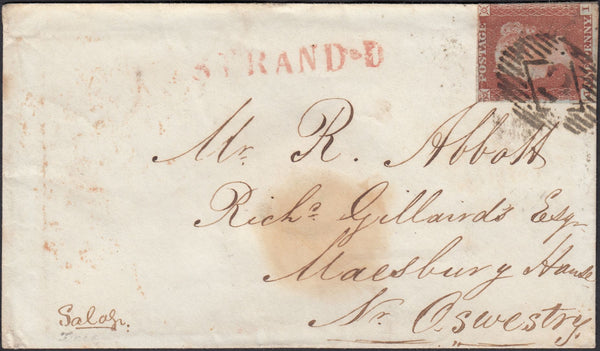 STRAND-D
POSTAGE
PENNY
Mr. R. Abbott
Richd. Gillards Esq
Maesbury House
Nr. Oswestry
Salop.